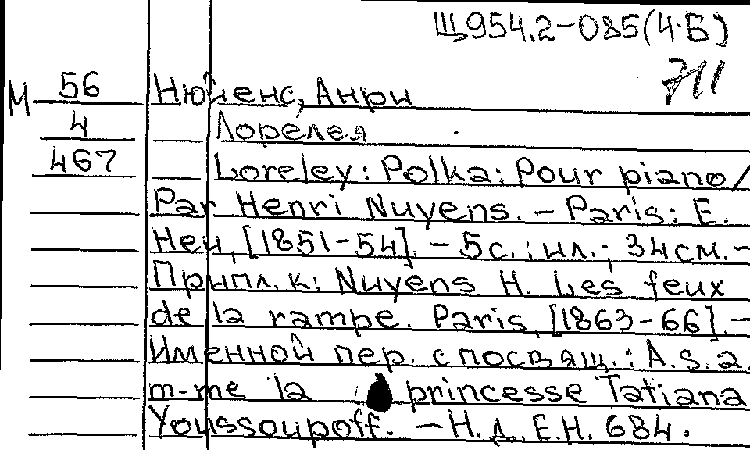 Щ954.2-085(4·Б)
711
М 56 Нюиенс, Анри
4 Лорелея
467 Loreley: Polka: Pour piano/
Par Henri Nuyens. – Paris: E.
Heu, [1851-54]. – 5с.: ил.; 34см. –
Припл. к: Nuyens H. Les feux
de la rampe. Paris, [1863-66]. –
Именной пер. с посвящ.: A.s.a.
m-me la princesse Tatiana
Youssoupoff. – Н.д. Е.Н. 684.